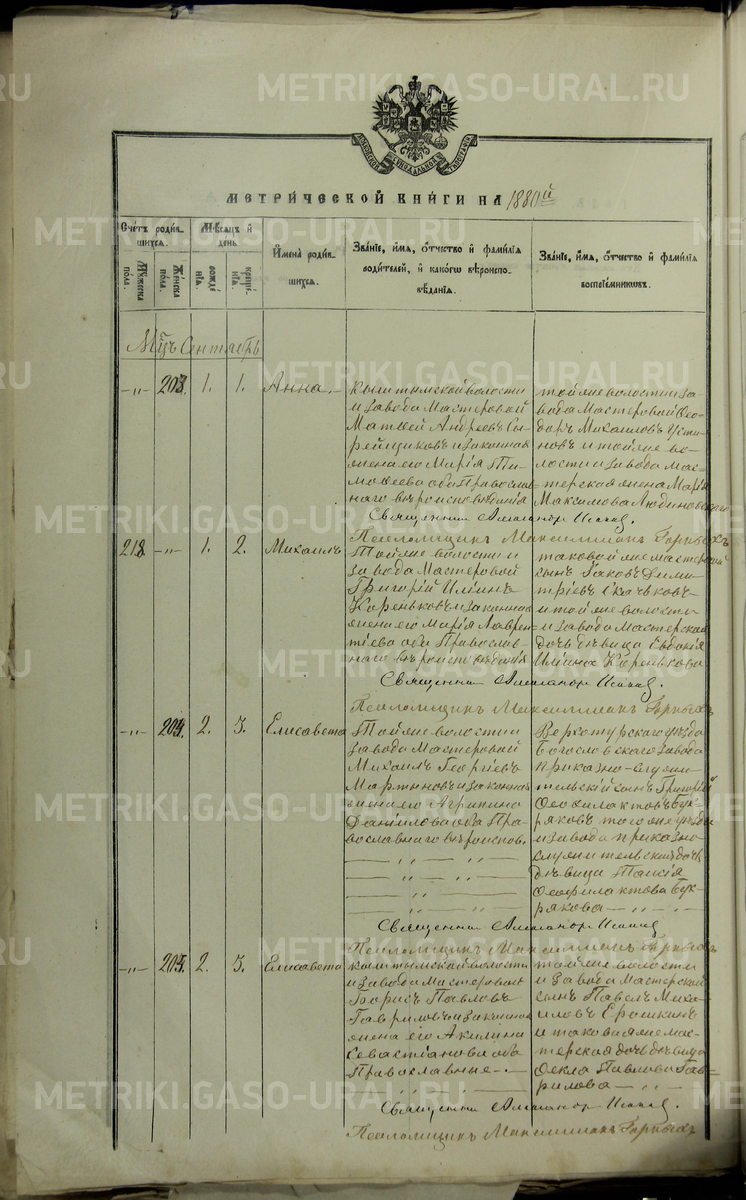 METRIKI.GASO-URAL.RU
МОСКОВСКОЙ СѴНОДАЛЬНОЙ ТИПОГРАФІИ
МЕТРИ́ЧЕСКОЙ КНИ́ГИ НА 1880й
Сче́тъ роди́вшихсѧ.
Му́жеска пола.
Же́нска пола.
Мѣ́сѧцъ и҆ день.
рожде́нїѧ.
креще́нїѧ.
И҆мена̀ роди́вшихсѧ.
Зва́нїе, и҆́мѧ, ѻ҆́тчество и҆ фами́лїѧ родителей, и҆ како́гѡ вѣроисповѣ́данїѧ.
Зва́нїе, и҆́мѧ, ѻ҆́тчество и҆ фами́лїѧ воспрїе́мникѡвъ.
Мцъ Сентябрь
203. 1. 1. Анна.
Кыштымской волости
и завода Мастеровой
Матвей Андреевъ
и законная
жена его Марія Ти-
мофеева оба Православ-
наго вѣроисповѣданія
той же волости и за-
вода Мастеровой Ѳео-
доръ Михаиловъ Усти-
новъ и той же во-
лости и завода мас-
терская жена Марія
Максимова
Священникъ
Псаломщикъ Максимилианъ Горныхъ
218 1. 2. Михаилъ
Той же волости и
завода Мастеровой
Григорій Ильинъ
Кореньковъ и законная
жена его Марія Лаврен-
тіева оба Православ-
наго вѣроисповѣданія
таковой же мастерской
сынъ Яковъ Дими-
тріевъ
и той же волости
и завода Мастерская
дочь дѣвица Евдокія
Ильина Коренькова
Священникъ
Псаломщикъ Максимилианъ Горныхъ
204. 2. 3. Елисавета
Той же волости и
завода Мастеровой
Михаилъ Георгіевъ
Мартыновъ и законная
жена его Агрипина
Даніилова оба Пра-
вославнаго вѣроиспов.
Верхотурскаго уѣзда
Богословскаго завода
приказно-служи-
тельскій сынъ Григорій
Ѳеофилактовъ Бук-
ряковъ того же уѣзда
и завода приказно
служительская дочь
дѣвица Таисія
Ѳеофилактова Бук-
рякова
Священникъ
Псаломщикъ Максимилианъ Горныхъ
205. 2. 3. Елисавета
Кыштымской волости
и завода Мастеровой
Борисъ Павловъ
Гавриловъ и законная
жена его Акилина
Севастіанова оба
Православные.
той же волости
и завода Мастерской
сынъ Павелъ Миха-
иловъ Ерошкинъ
и таковая же мас-
терская дочь дѣвица
Ѳекла Павлова Гав-
рилова
Священникъ
Псаломщикъ Максимилианъ Горныхъ